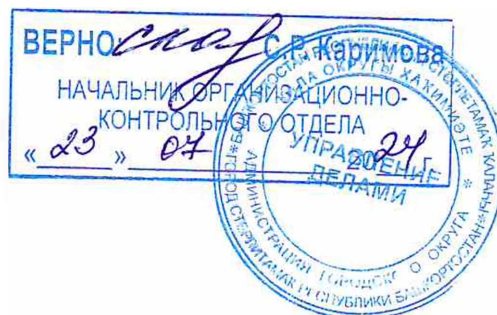 ВЕРНО С.Р. Каримова
НАЧАЛЬНИК ОРГАНИЗАЦИОННО-
КОНТРОЛЬНОГО ОТДЕЛА
« 23 » 07 2024 г.
УПРАВЛЕНИЕ
ДЕЛАМИ
АДМИНИСТРАЦИЯ ГОРОДСКОГО ОКРУГА
ГОРОД СТЕРЛИТАМАК РЕСПУБЛИКИ БАШКОРТОСТАН
КАЛА ОКРУГЫ ХАКИМИӘТЕ